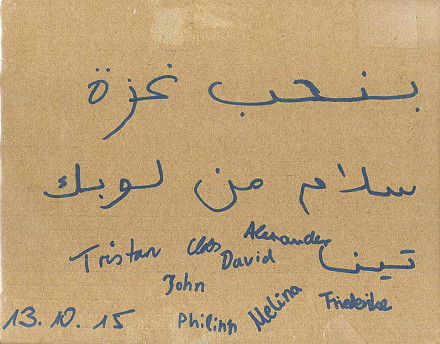 بنحب غزة
سلام من لوبك
Alexander
Tristan David
تينا
John
Melina Friederike
Philipp
13.10.15